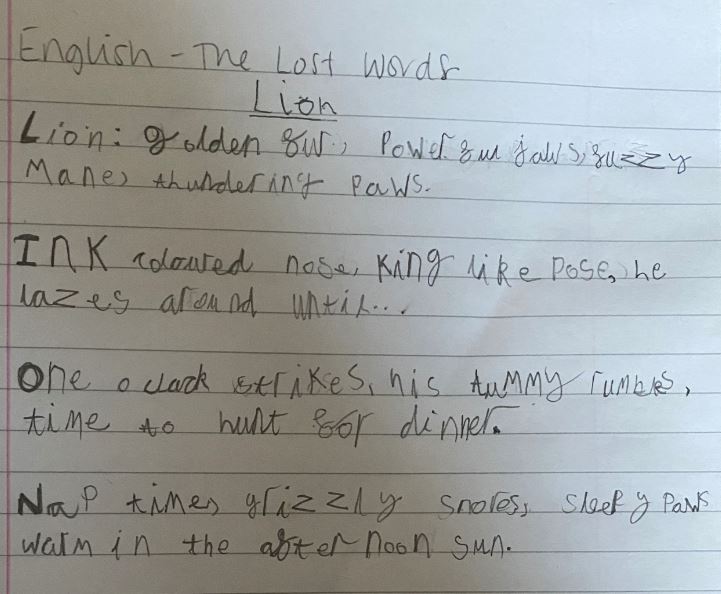 English - The Lost Words
Lion
Lion: golden fur, Powerful jaws, fuzzy
Mane, thundering paws.
INK coloured nose, King like Pose, he
lazes around until...
One o clack strikes, his tummy rumbles,
time to hunt for dinner.
Nap time, grizzly snores, sleepy paws
warm in the afternoon sun.